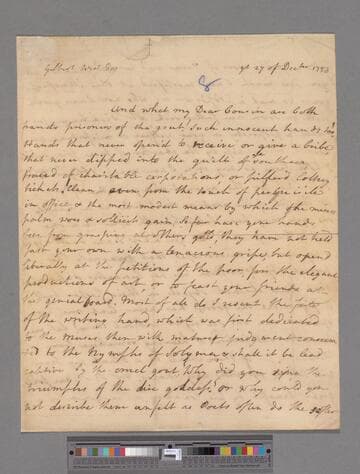 Gilbert West Esqr ye 27 of Decbr 1753
8
And what my Dear Cousin are both
hands prisoners of the gout! such innocent hands too!
Hands that never open'd to receive or give a bribe
that never dipped into the guilt of southern
of charitable corporations, or pilfered Lottery
tickets! clean even from the touch of perquisite
in office, & the most modest means by which the
palm woos & sollicits gain. So far have your hands
been from grasping at others gold, they have not held
fast your own with a tenacious gripe, but opend
liberally at the petitions of the poor, for the elegant
productions of art, or to feast your friends at
the genial board. Most of all do I resent the fate
of the writing hand, which was first dedicated
to the Muses, then with maturer judgment consecra
ted to the Nymphs of Solyma; & shall it be lead
captive by the cruel gout! Why did you sing the
triumphs of the dire goddess? or why could you
not describe them unfelt as Poets often do the softer